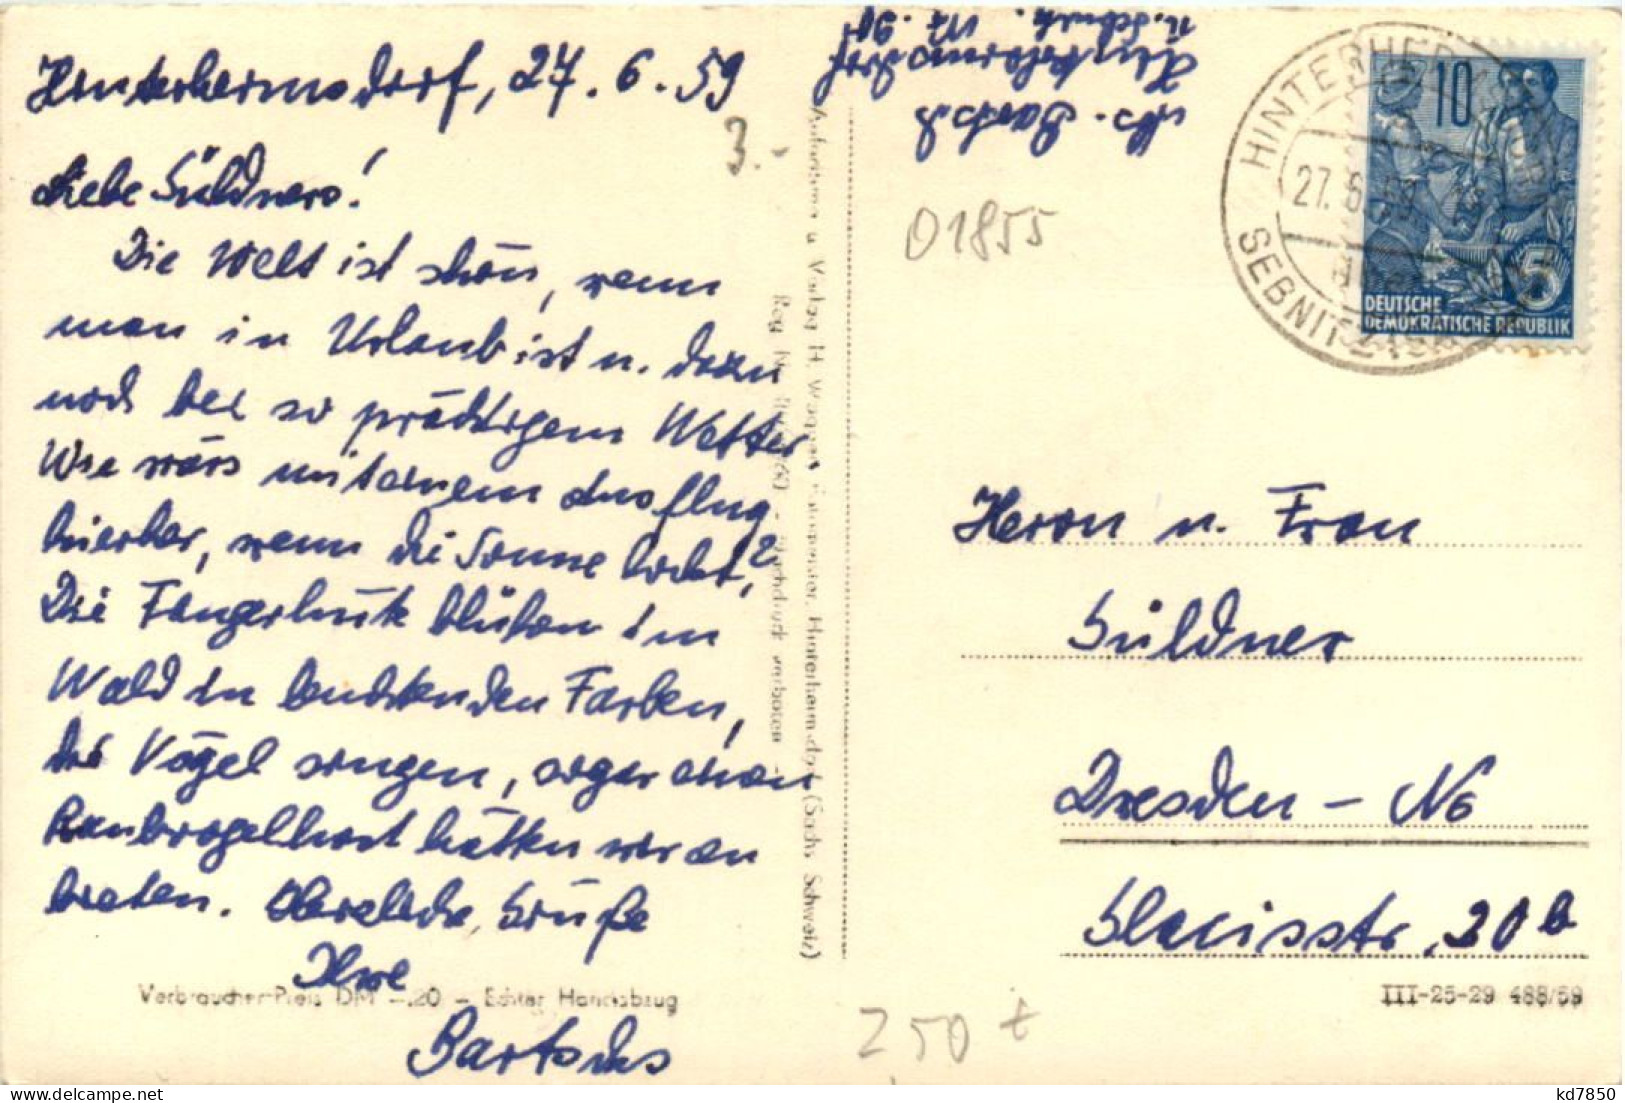 Hinterhermsdorf, 27.6.59
Liebe Süldners!
Die Welt ist schön, wenn
man in Urlaub ist u. dazu
noch bei so prächtigem Wetter
Wie wärs mit einem Ausflug
hierher, wenn die Sonne lockt?
Die Fingerhüte blühen im
Wald in leuchtenden Farben,
die Vögel singen, sogar einen
Raubvogelhorst hätten wir an
bieten. Herzliche Grüße
Ihre
Bartschs
Verbraucher-Preis DM -.20 - Echter Handabzug
3.-
Aufnahme u. Verlag H. Hinterhermsdorf (Sächs. Schweiz)
Nachdruck verboten -
Abs. Bartsch
Hinterhermsdorf
01855
HINTERHERMSDORF
27.6.59
SEBNITZ
10
5
DEUTSCHE
DEMOKRATISCHE REPUBLIK
Herrn u. Frau
Süldner
Dresden - N6
Glacisstr. 20 b
III-25-29 488/59
Z50t
kd7850